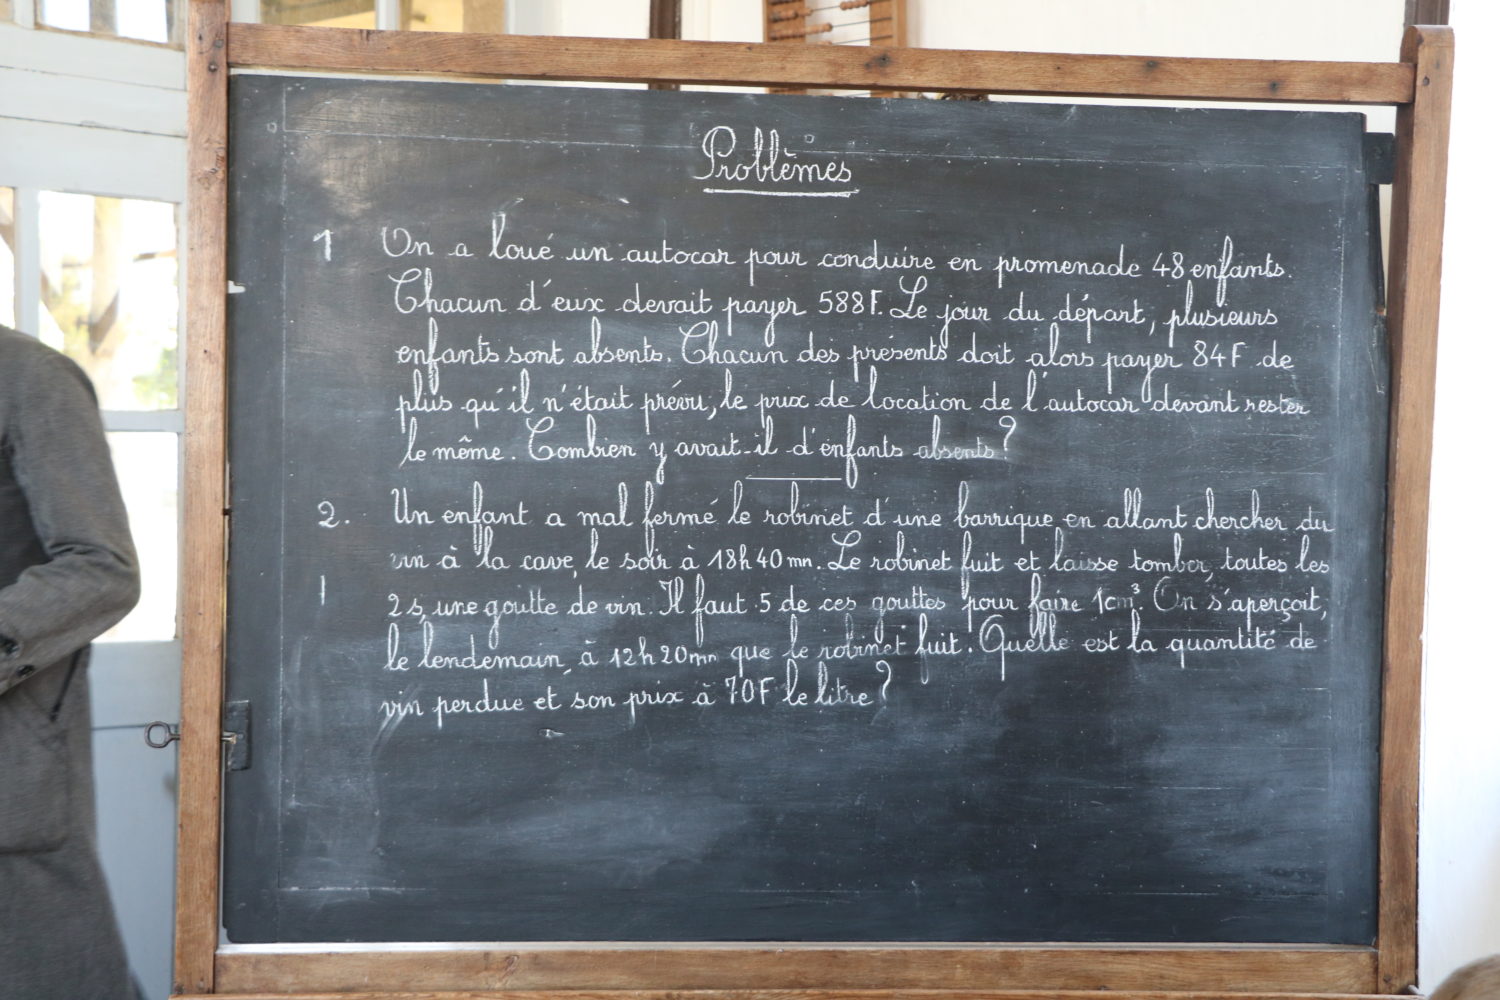 Problèmes
1 On a loué un autocar pour conduire en promenade 48 enfants.
Chacun d'eux devait payer 588F. Le jour du départ, plusieurs
enfants sont absents. Chacun des présents doit alors payer 84F de
plus qu'il n'était prévu, le prix de location de l'autocar devant rester
le même. Combien y avait-il d'enfants absents?
2. Un enfant a mal fermé le robinet d'une barrique en allant chercher du
vin à la cave, le soir à 18h40mn. Le robinet fuit et laisse tomber, toutes les
2s, une goutte de vin. Il faut 5 de ces gouttes pour faire 1cm³. On s'aperçoit,
le lendemain, à 12h20mn que le robinet fuit. Quelle est la quantité de
vin perdue et son prix à 70F le litre?